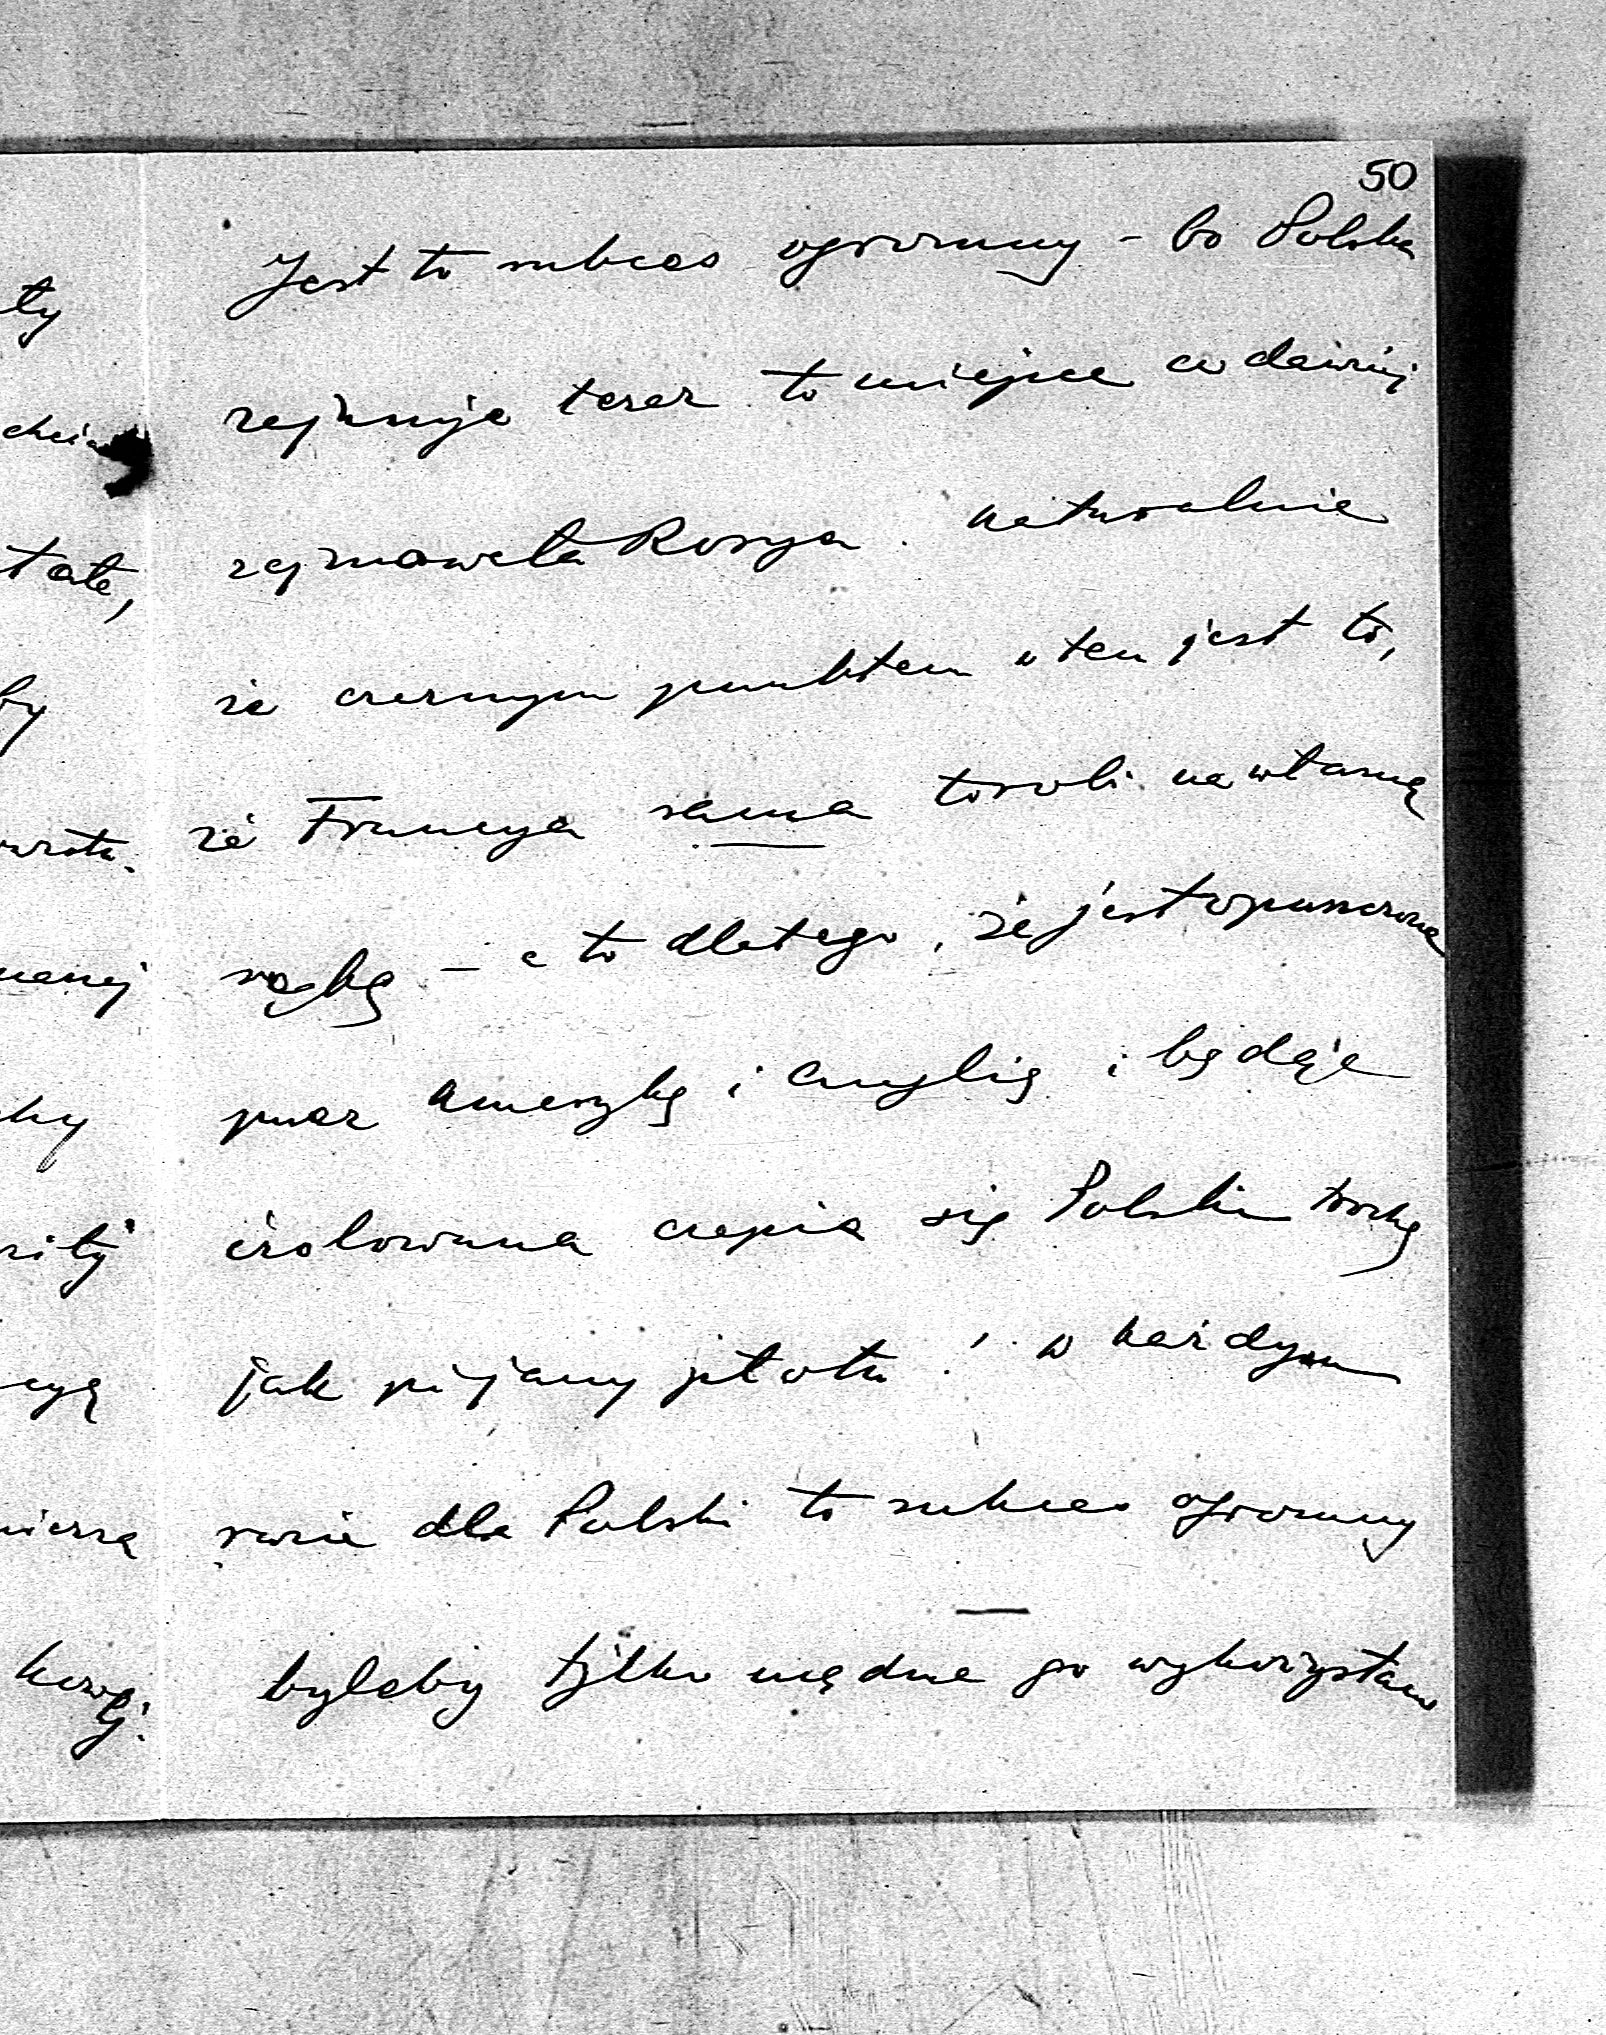 50
Jest to sukces ogromny - bo Polska
zajmuje teraz to miejsce co dawniej
zajmowała Rosya. naturalnie
że czarnym punktem w tem jest to,
że Francya sama to robi na własną
rękę - a to dlatego, że jest opuszczona
przez Amerykę i Anglię i będąc
izolowana czepia się Polski trochę
jak pijany płotu! w każdym
razie dla Polski to sukces ogromny
byleby tylko mądrze go wykorzystano
ty
tate,
by
kową.